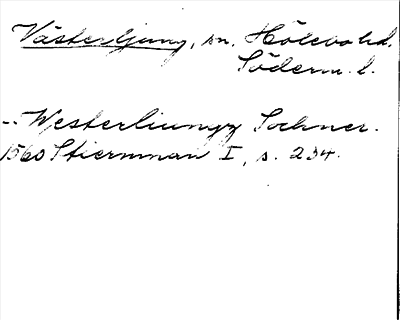 Västerljung, sn. Hölebo hd.
Söderm. l.
-- Westerliungz Sochner.
1560 Stiernman I, s. 234.